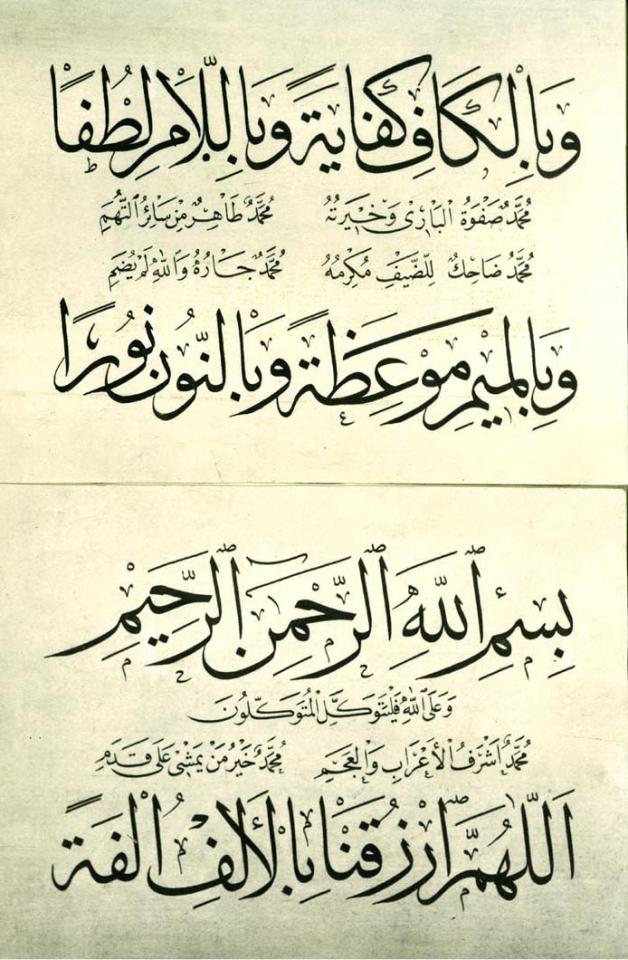 وَبِالْكَافِ كِفَايَةً وَبِاللَّامِ لُطْفًا
مُحَمَّدٌ صَفْوَةُ الْبَارِي وَخِيرَتُهُ مُحَمَّدٌ طَاهِرٌ مِنْ سَائِرِ التُّهَمِ
مُحَمَّدٌ ضَاحِكٌ لِلضَّيْفِ مُكْرِمُهُ مُحَمَّدٌ جَارُهُ وَاللهِ لَمْ يُضَمِ
وَبِالْمِيمِ مَوْعِظَةً وَبِالنُّونِ نُورًا
بِسْمِ اللهِ الرَّحْمٰنِ الرَّحِيمِ
وَعَلَى اللهِ فَلْيَتَوَكَّلِ الْمُتَوَكِّلُونَ
مُحَمَّدٌ أَشْرَفُ الْأَعْرَابِ وَالْعَجَمِ مُحَمَّدٌ خَيْرُ مَنْ يَمْشِي عَلَى قَدَمِ
اَللّٰهُمَّ ارْزُقْنَا بِالْأَلِفِ أُلْفَةً